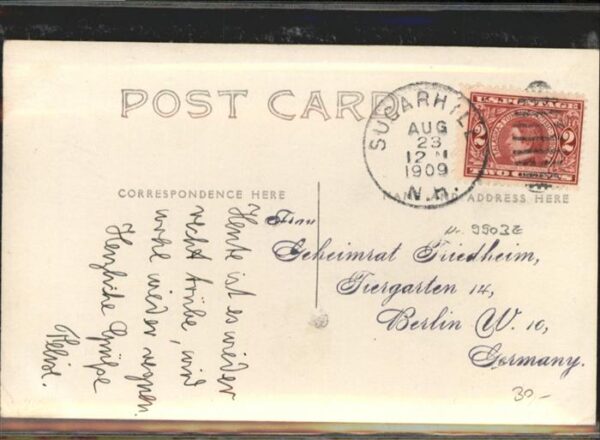 POST CARD
SUGARHILL
AUG
23
12 M
1909
N.H.
2
2
TWO CENTS
CORRESPONDENCE HERE
NAME AND ADDRESS HERE
Heute ist es wieder
recht trübe, wird
wohl wieder regnen.
Herzliche Grüße
Frau
Geheimrat Friedheim,
Tiergarten 14,
Berlin W. 10,
Germany.
30.-